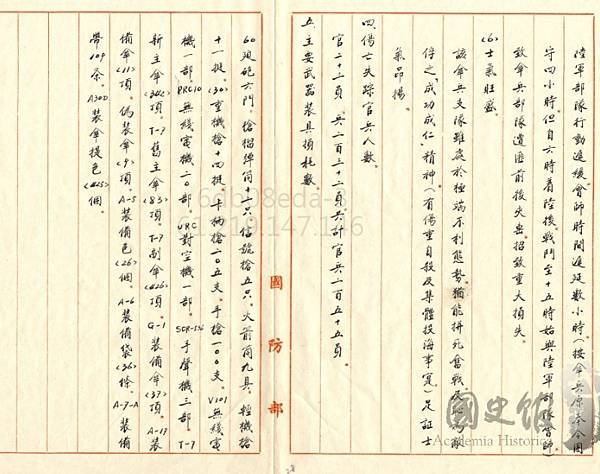 陸軍部隊行動遲緩會師時間遲延數小時(按傘兵原奉令固
守四小時但自六時着陸後戰鬥至十五時始與陸軍部隊會師
致傘兵部隊遭匪前後夾岳招致重大損失
(6)士氣旺盛
該傘兵支隊雖處於極端不利態勢猶能拼死奮戰
俘之「成功成仁」精神(有傷重自殺及集體投海事實)足証士
氣昂揚
四、傷亡失踪官兵人數。
官二十二員兵二百三十二員共計官兵二百五十五員
五、主要武器裝具損耗數。
60迫砲六門槍榴彈筒十二只信號槍五只火箭筒九具輕機槍
十一挺(30)重機槍十四挺卡柄槍二〇五支手槍一〇〇支V101無綫電
機一部PRC10無綫電機二〇部URC對空機一部SCR-536手聲機三部T-7
新主傘(342)頂T-7舊主傘(83)頂T-7副傘(426)頂G-1裝備傘(37)頂A-13裝
備傘(11)頂偽裝傘(9)頂A-5裝備包(26)個A-6裝備袋(36)條A-7-A裝備
帶109条A300裝傘提包(425)個
國防部
國史館
Academia Historica